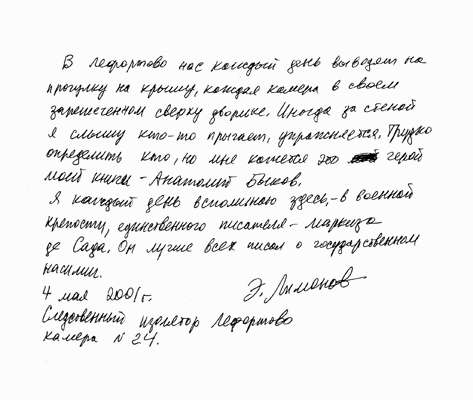 В Лефортово нас каждый день выводят на
прогулку на крышу, каждая камера в своем
зарешеченном сверху дворике. Иногда за стеной
я слышу кто-то прыгает, упражняется. Трудно
определить кто, но мне кажется это герой
моей книги - Анатолий Быков.
Я каждый день вспоминаю здесь, - в военной
крепости, единственного писателя - маркиза
де Сада. Он лучше всех писал о государственном
насилии.
4 мая 2001 г. Э. Лимонов
Следственный изолятор Лефортово
камера N 24.